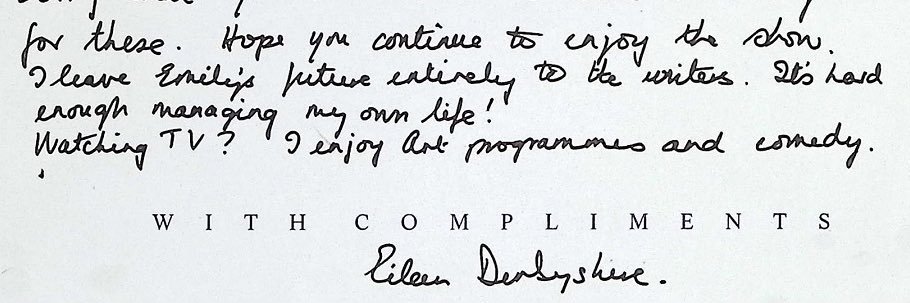 for these. Hope you continue to enjoy the show.
I leave Emily's future entirely to the writers. It's hard
enough managing my own life!
Watching TV? I enjoy Art programmes and comedy.
WITH COMPLIMENTS
Eileen Derbyshire.